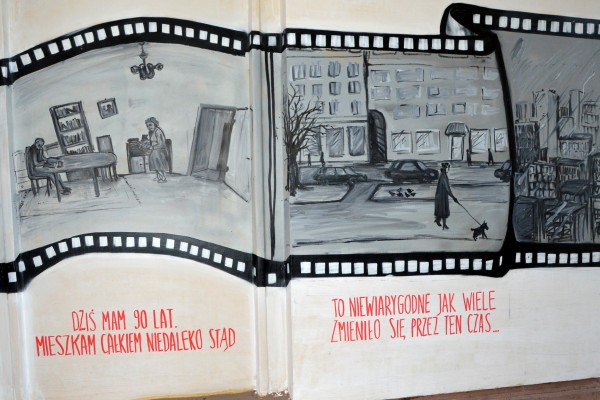 DZIŚ MAM 90 LAT.
MIESZKAM CAŁKIEM NIEDALEKO STĄD
TO NIEWIARYGODNE JAK WIELE
ZMIENIŁO SIĘ PRZEZ TEN CZAS...